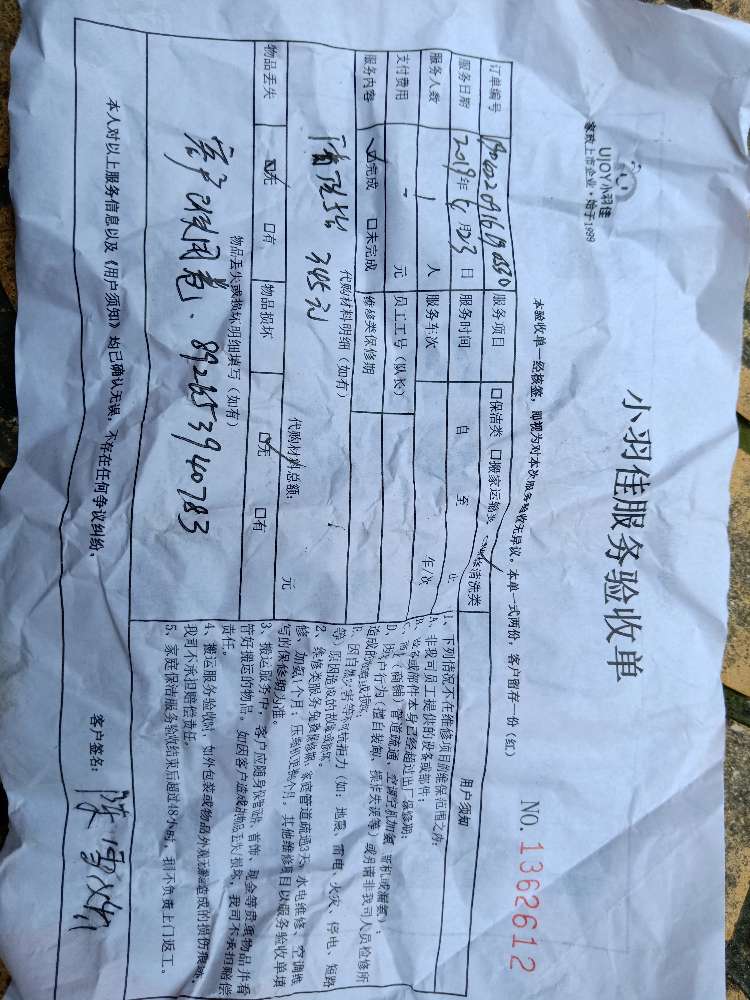 UJOY小羽佳
家政上市企业·始于1999
小羽佳服务验收单
NO. 1362612
本验收单一经核签，即视为对本次服务验收无异议。本单一式两份，客户留存一份（红）
订单编号 服务项目 口保洁类 口搬家运输类 清洗类
服务日期 2019年 月23日 服务时间 自 至
服务人数 1 人 服务车次 车/次
支付费用 - 元 员工工号（队长）
服务内容 ☑完成 口未完成 维修类保修期
代购材料明细（如有）
345元
代购材料总额： 元
物品丢失 ☑无 口有 物品损坏 ☑无 口有
物品丢失或损坏明细填写（如有）
客户已使用卷、
本人对以上服务信息以及《用户须知》均已确认无误，不存在任何争议纠纷。
用户须知
1、下列情况不在维修项目的维保范围之内：
A、非我司员工提供的设备或部件；
B、设备或部件本身已经超过出厂保修期；
C、（商铺）管道疏通、空调空机加氨（新机或漏氨）；
D、用户行为（擅自装卸、操作失误等）或另请非我司人员检修所
造成的故障或损坏；
E、因自然灾害等不可抗拒力（如：地震、雷电、火灾、停电、短路
等）原因造成的故障或损坏。
2、维修类服务免费保修期：家庭管道疏通3天，水电维修、空调维
修、加氨1个月；压缩机更换 个月。其他维修项目以服务验收单填
写的保修期为准。
3、搬运服务中，客户应随身保管钱、首饰、现金等贵重物品并看
管好搬运的物品。如因客户造成的物品丢失/损坏，我司不承担赔偿
责任。
4、搬运服务验收时，如外包装或物品外观无 造成的损伤痕迹，
我司不承担赔偿责任。
5、家庭保洁服务验收结束后超过48小时，我司不负责上门返工。
客户签名：